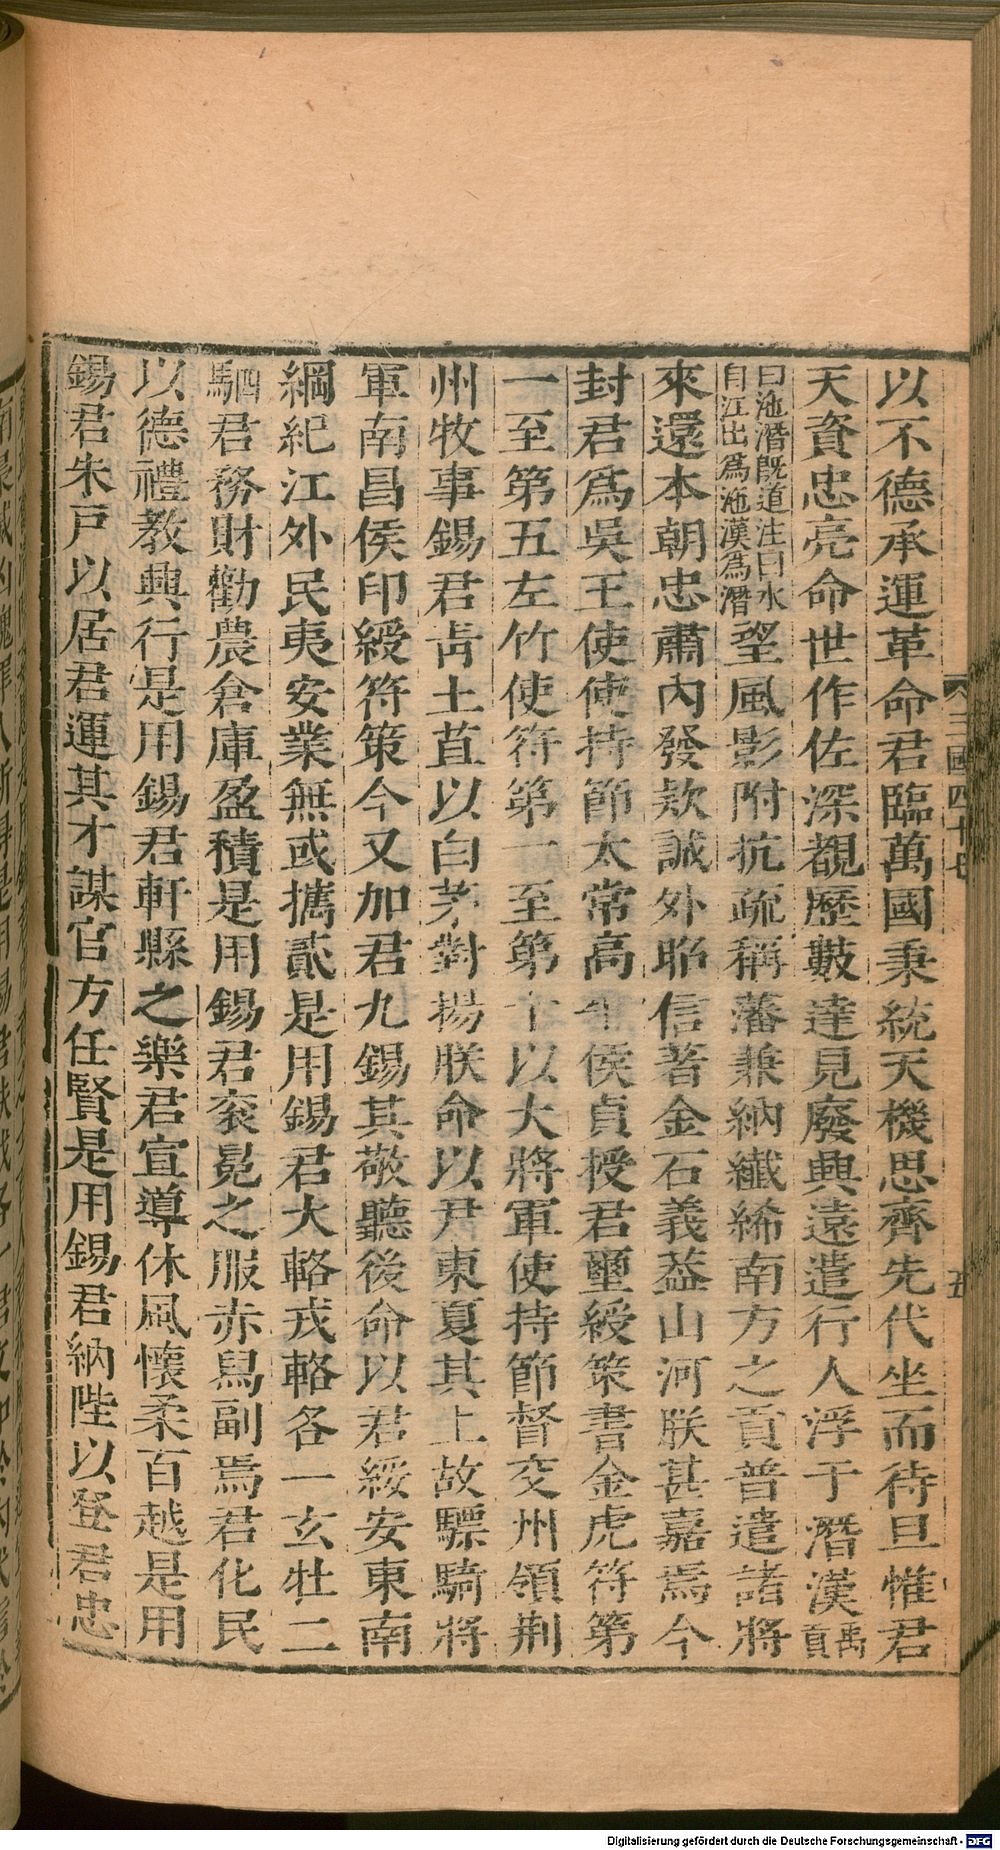 三國四十七
五
以不德承運革命君臨萬國秉統天機思齊先代坐而待旦惟君
天資忠亮命世作佐深覩歷數達見廢興遠遣行人浮于潛漢禹貢
曰沲潛既道注曰水自江出爲沲漢爲潛望風影附抗疏稱藩兼納纖絺南方之貢普遣諸將
來還本朝忠肅內發款誠外昭信著金石義葢山河朕甚嘉焉今
封君爲吳王使使持節太常高平侯貞授君璽綬策書金虎符第
一至第五左竹使符第一至第十以大將軍使持節督交州領荆
州牧事錫君靑土苴以白茅對揚朕命以尹東夏其上故驃騎將
軍南昌侯印綬符策今又加君九錫其敬聽後命以君綏安東南
綱紀江外民夷安業無或攜貳是用錫君大輅戎輅各一玄牡二
駟君務財勸農倉庫盈積是用錫君衮冕之服赤舃副焉君化民
以德禮教興行是用錫君軒縣之樂君宣導休風懷柔百越是用
錫君朱戸以居君運其才謀官方任賢是用錫君納陛以登君忠
Digitalisierung gefördert durch die Deutsche Forschungsgemeinschaft - DFG